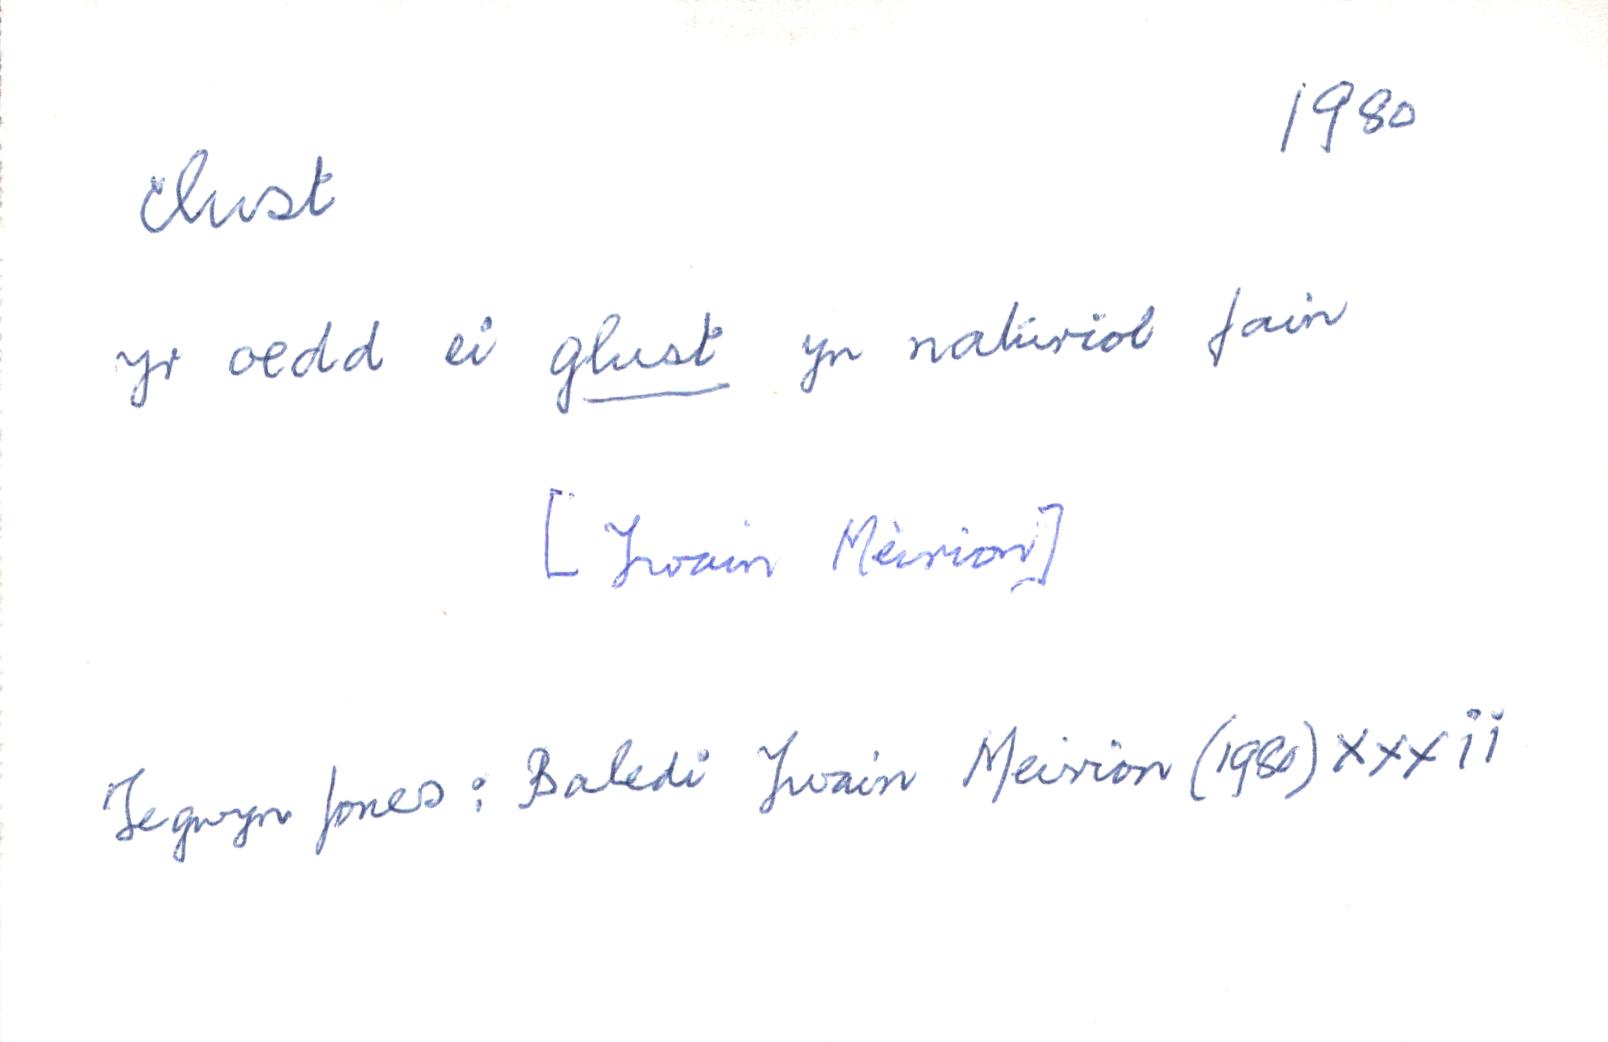 1980
clust
yr oedd ei glust yn naturiol fain
[Ywain Meirion]
Tegwyn Jones: Baledi Ywain Meirion (1980) xxxii